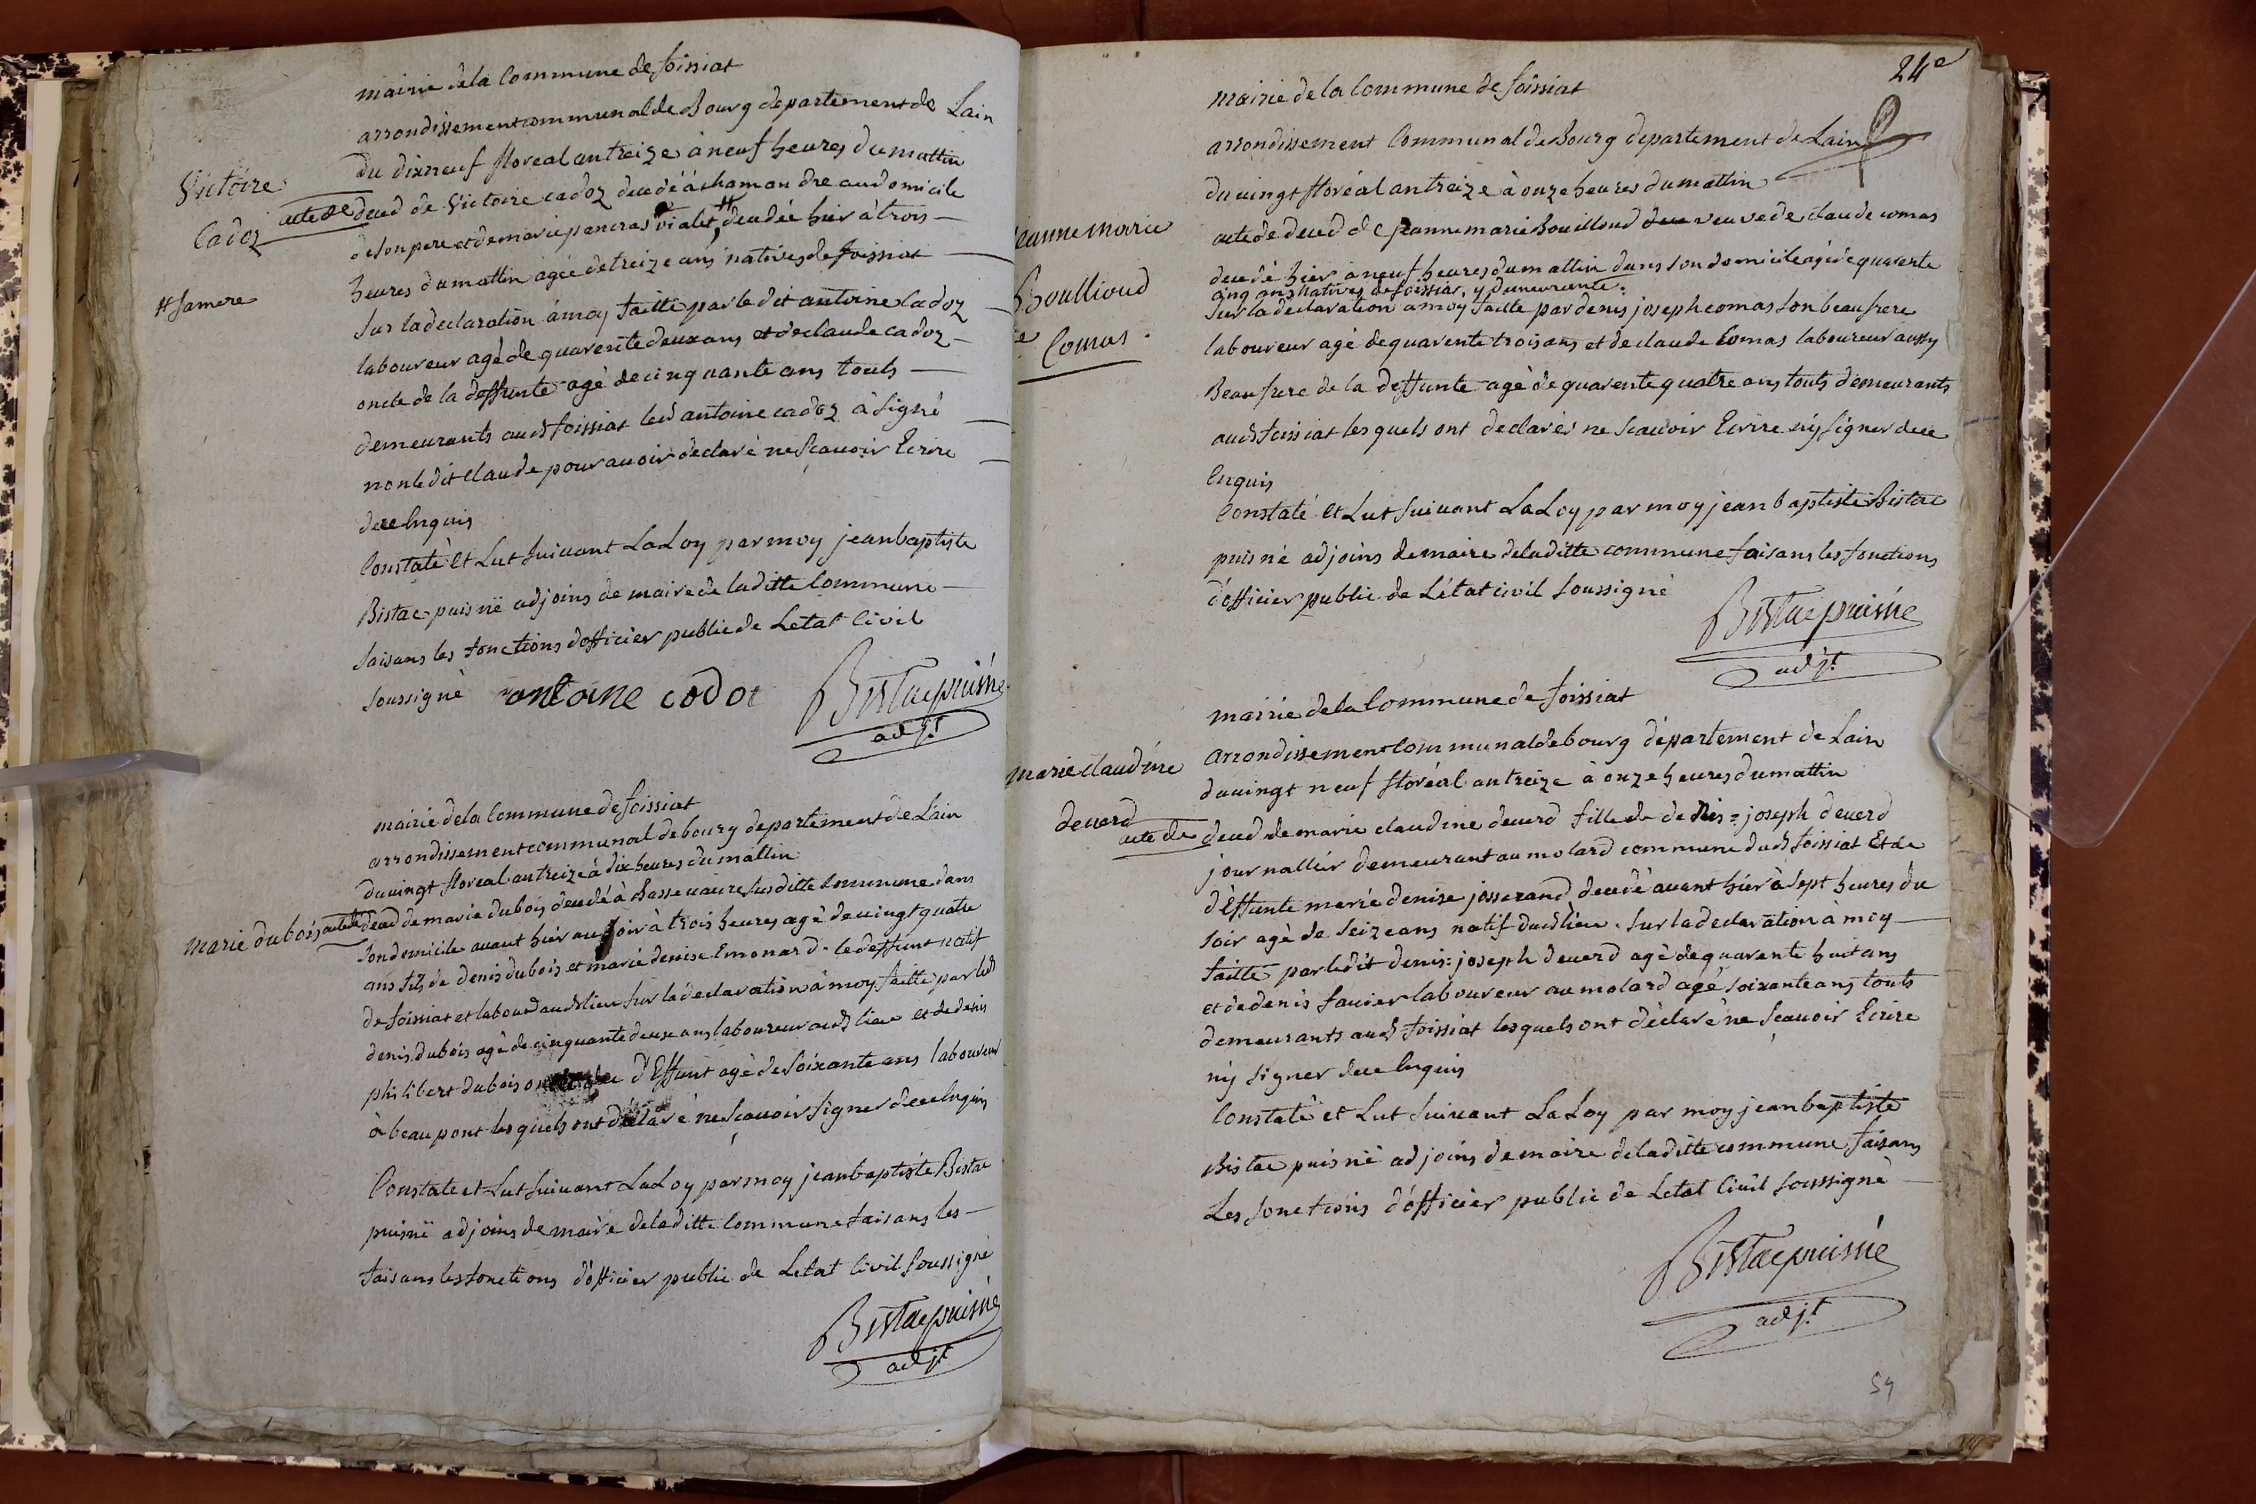 mairie dela Commune de foissiat
arrondissement communal de Bourg departement de Lain
du dixneuf floreal an treize à neuf heures du mattin
Victoire
Cadoz
acte de deced de Victoire cadoz decedé à chamandre au domicile
de son pere et de marie pancras vialet, # decedée hier à trois —
# sa mere
heures du mattin agée de treize ans natives de foissiat —
Sur la declaration à moy faitte par le dit antoine Cadoz —
laboureur agé de quarente deux ans et de claude cadoz —
oncle de la deffunte agé de cinquante ans touts —
demeurants aud foissiat led antoine cadoz à signé —
non le dit claude pour avoir declaré ne Scavoir Ecrire —
de ce Enquis
Constaté Et Lut suivant La Loy par moy jean baptiste
Bistac puisné adjoins de maire de laditte Commune —
faisans les fonctions dofficier public de Letat Civil
soussigné
antoine codot
Bistac puisné
adjt
mairie dela Commune de foissiat
arrondissement communal de bourg departement de Lain
du vingt floreal an treize à dix heures du mattin
marie dubois
acte de deced de marie dubois decedé à Basse vaivre susditte Commune dans
son domicile avant hier au soir à trois heures agé de vingt quatre
ans fils de denis dubois et marie denise Emonard. le deffunt natif
de foissiat et laboud aud lieu sur la declaration à moy faitte par led
denis dubois agé de cinquante deux ans laboureur aud lieu et de denis
philibert dubois deffunt agé de soixante ans laboureur
à beaupont lesquels ont déclaré ne Scavoir signer de ce Enquis
Constate et Lut suivant La Loy par moy jean baptiste Bistac
puisné adjoins de maire de laditte Commune faisans les —
faisans les fonctions d'officier public de Letat Civil soussigné
Bistac puisné
adjt
24e
mairie de la Commune de foissiat
arrondissement Communal de Bourg departement de Lain
du vingt floréal an treize à onze heures du mattin
jeanne marie
Boullioud
Ve Comas
acte de deced de jeanne marie Bouilloud veuve de claude comas
decedé hier à neuf heures du mattin dans son domicile agé de quarente
cinq ans natives de foissiat, y demeurante.
Sur la declaration à moy faitte par denis joseph comas son beau frere
laboureur agé de quarente trois ans et de claude Comas laboureur aussy
Beau frere de la deffunte agé de quarente quatre ans touts demeurants
aud foissiat lesquels ont declarés ne Scavoir Ecrire ny signer de ce
Enquis
Constaté Et Lut suivant La Loy par moy jean baptiste Bistac
puisné adjoins de maire de laditte commune faisans les fonctions
d'officier public de L'état civil soussigné
Bistac puisné
adjt
mairie de la Commune de foissiat
arrondissement Communal de bourg département de Lain
du vingt neuf floréal an treize à onze heures du mattin
marie claudine
deverd
acte de deced de marie claudine deverd fille de denis = joseph deverd
journallier demeurant au molard commune dud foissiat Et de
d'Effunte marie denise josserand decedé avant hier à sept heures du
soir agé de seize ans natif dud lieu. Sur la declaration à moy —
faitte par ledit denis = joseph deverd agé de quarante huit ans
et de denis favier laboureur au molard agé soixante ans touts
demeurants aud foissiat lesquels ont déclaré ne Scavoir Ecrire
ny signer de ce Enquis
Constaté et Lut suivant La Loy par moy jean baptiste
Bistac puisné adjoins de maire de laditte commune faisans
Les fonctions d'officier public de Letat Civil soussigné —
Bistac puisné
adjt
59